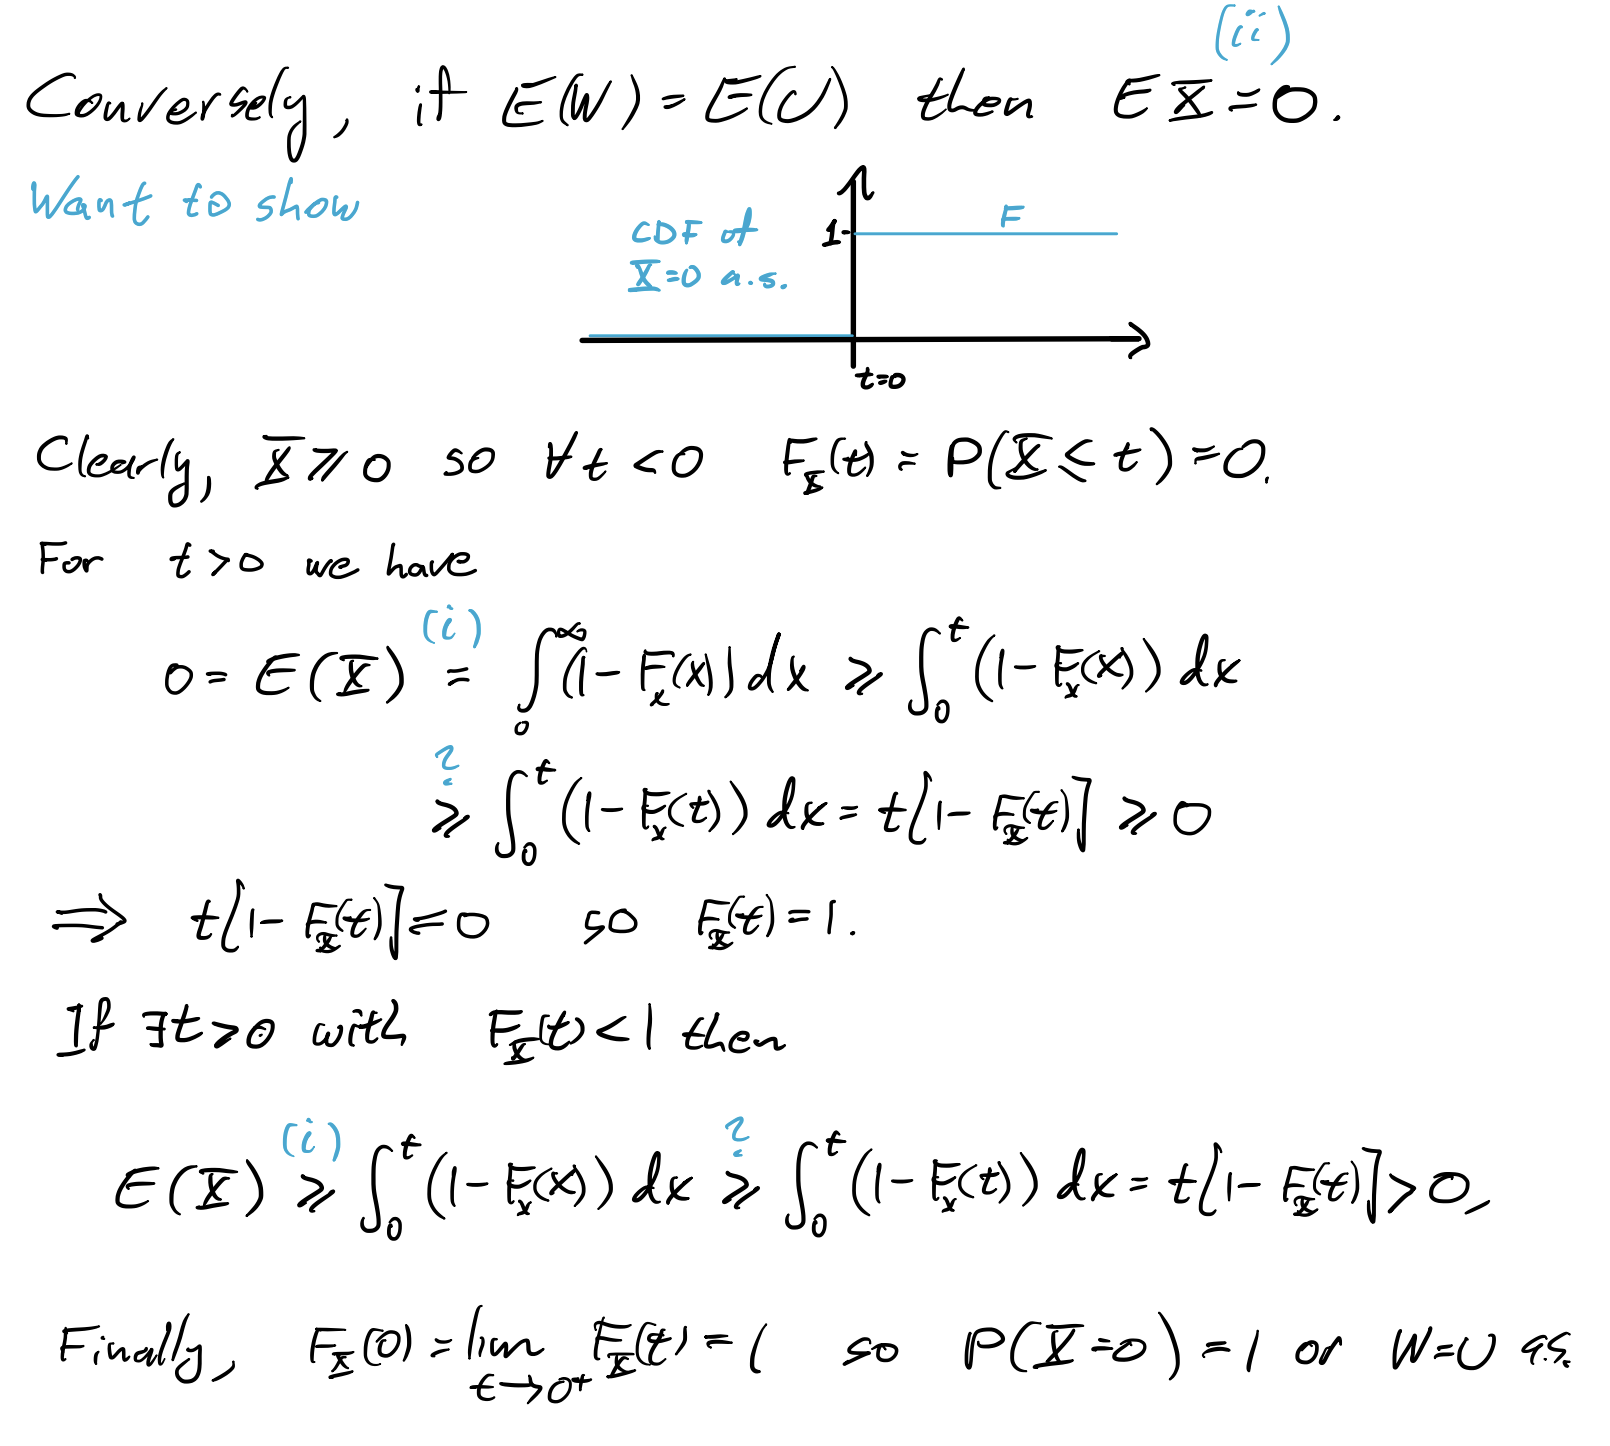 (ii)
Conversely, if E(W) = E(U) then E X = 0.
Want to show
CDF of
X=0 a.s.
1
F
t=0
Clearly, X ⩾ 0 so ∀ t < 0 F_X(t) = P(X ⩽ t) = 0.
For t > 0 we have
0 = E(X) (i) = ∫_0^∞ (1 - F_X(x)) dx ⩾ ∫_0^t (1 - F_X(x)) dx
? ⩾ ∫_0^t (1 - F_X(t)) dx = t[1 - F_X(t)] ⩾ 0
⟹ t[1 - F_X(t)] = 0 so F_X(t) = 1.
If ∃ t > 0 with F_X(t) < 1 then
E(X) (i) ⩾ ∫_0^t (1 - F_X(x)) dx ? ⩾ ∫_0^t (1 - F_X(t)) dx = t[1 - F_X(t)] > 0,
Finally, F_X(0) = lim_{t→0+} F_X(t) = 1 so P(X = 0) = 1 or W = U a.s.